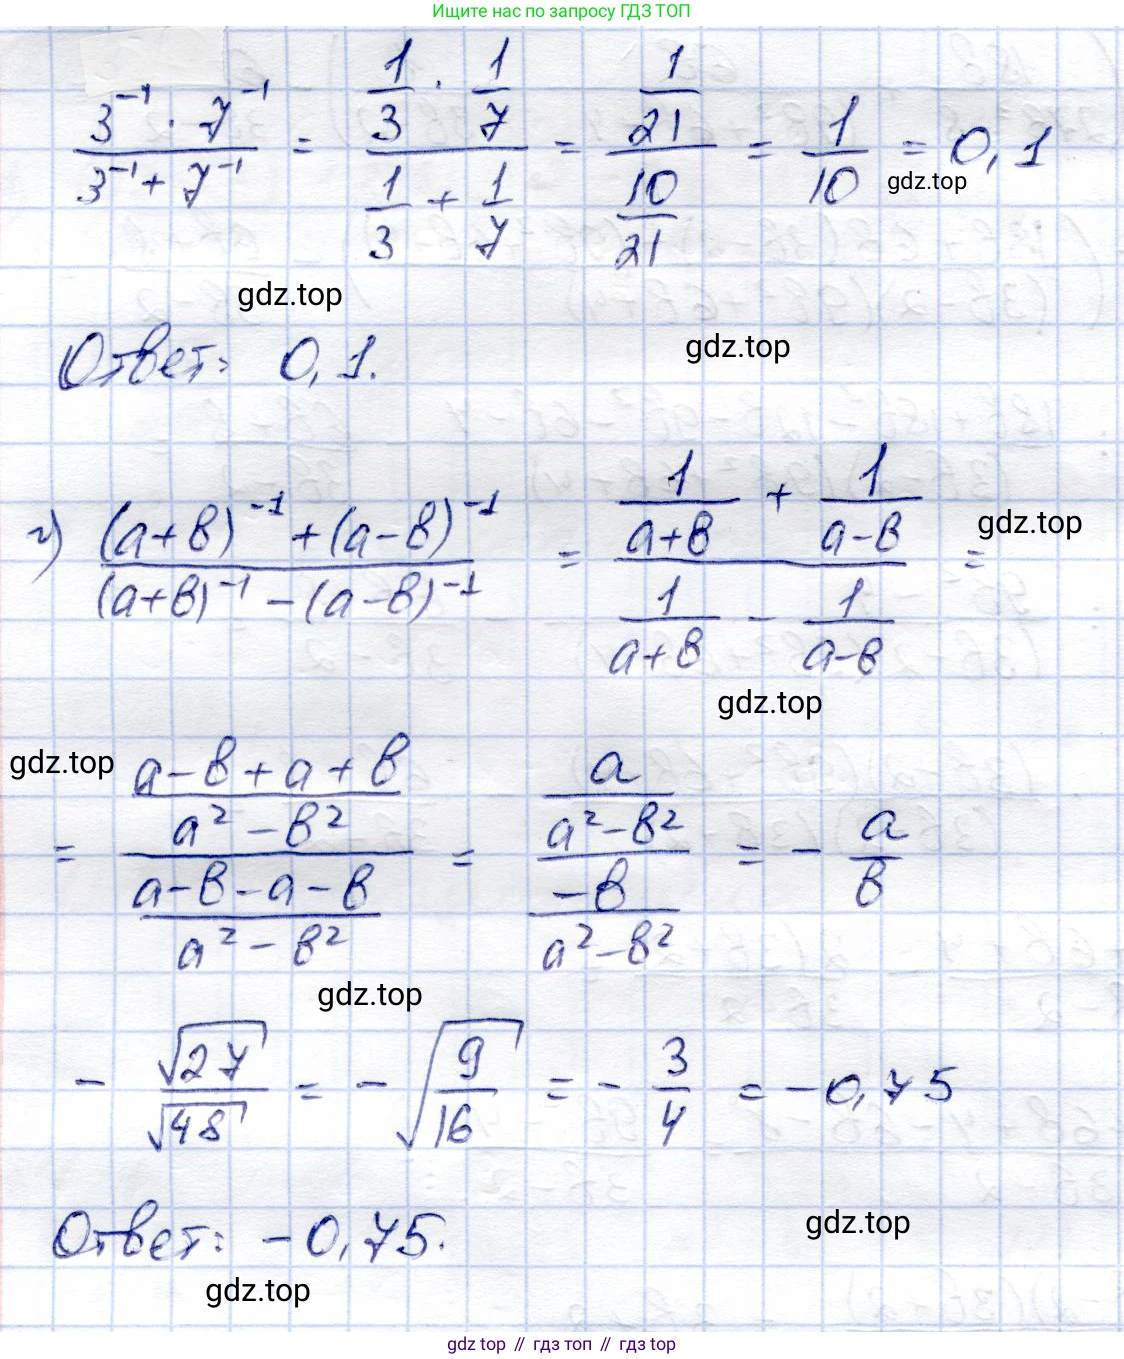 Ищите нас по запросу ГДЗ ТОП
(3⁻¹ · 7⁻¹)/(3⁻¹ + 7⁻¹) = (1/3 · 1/7)/(1/3 + 1/7) = (1/21)/(10/21) = 1/10 = 0,1
gdz.top
gdz.top
gdz.top
Ответ: 0,1.
г) ((a+b)⁻¹ + (a-b)⁻¹)/((a+b)⁻¹ - (a-b)⁻¹) = (1/(a+b) + 1/(a-b))/(1/(a+b) - 1/(a-b)) =
gdz.top
gdz.top
gdz.top
= ((a-b+a+b)/(a²-b²))/((a-b-a-b)/(a²-b²)) = (a/(a²-b²))/(-b/(a²-b²)) = - a/b
gdz.top
- √27/√48 = - √(9/16) = - 3/4 = -0,75
Ответ: -0,75.
gdz.top
gdz.top
gdz top // гдз топ // гдз top